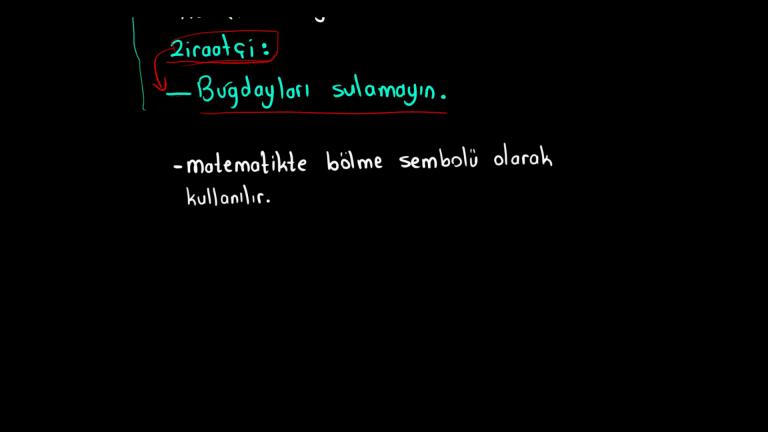 Ziraatçi:
— Buğdayları sulamayın.
- matematikte bölme sembolü olarak
kullanılır.